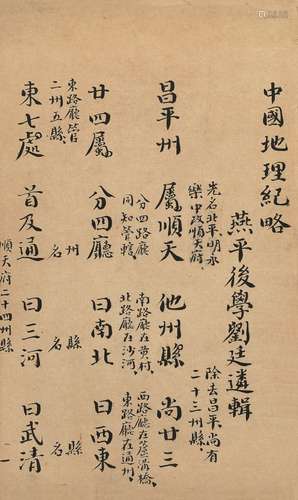 中國地理紀略
燕平後學劉廷遴輯
先名北平明永
樂中改順天府。
除去昌平尚有
二十三州縣。
昌平州 屬順天 他州縣 尚廿三
分四路廳
同知管轄
南路廳在黃村,
北路廳在沙河。
西路廳在蘆溝橋,
東路廳在通州。
廿四屬 分四廳 曰南北 曰西東
東路廳管
二州五縣。
州名
縣名
縣名
東七處 首及通 曰三河 曰武清
順天府二十四州縣
一